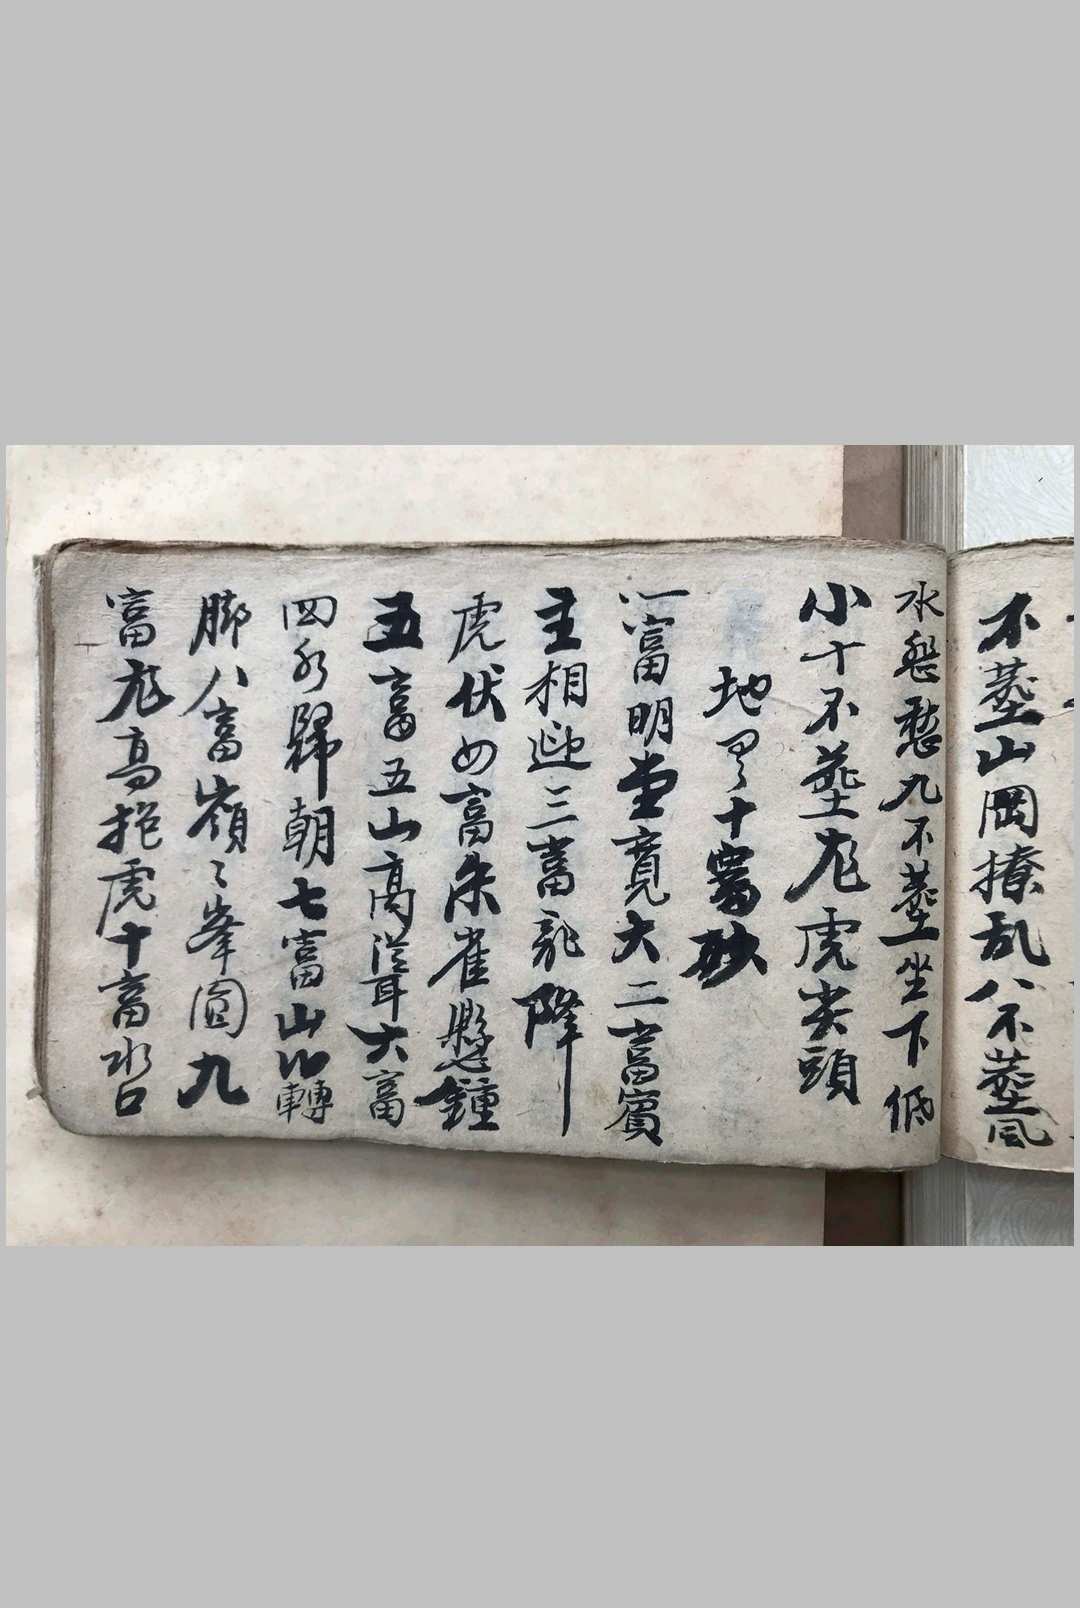 不塟山岡撩乱八不塟風
水悲愁九不塟坐下低
小十不塟尨虎尖頭
地里十富砂
一富明堂寛大二富賔
主相迎三富龍降
虎伏四富朱雀懸鐘
五富五山高聳六富
四水歸朝七富山轉
脚八富嶺々峯圓九
富尨高抱虎十富水口